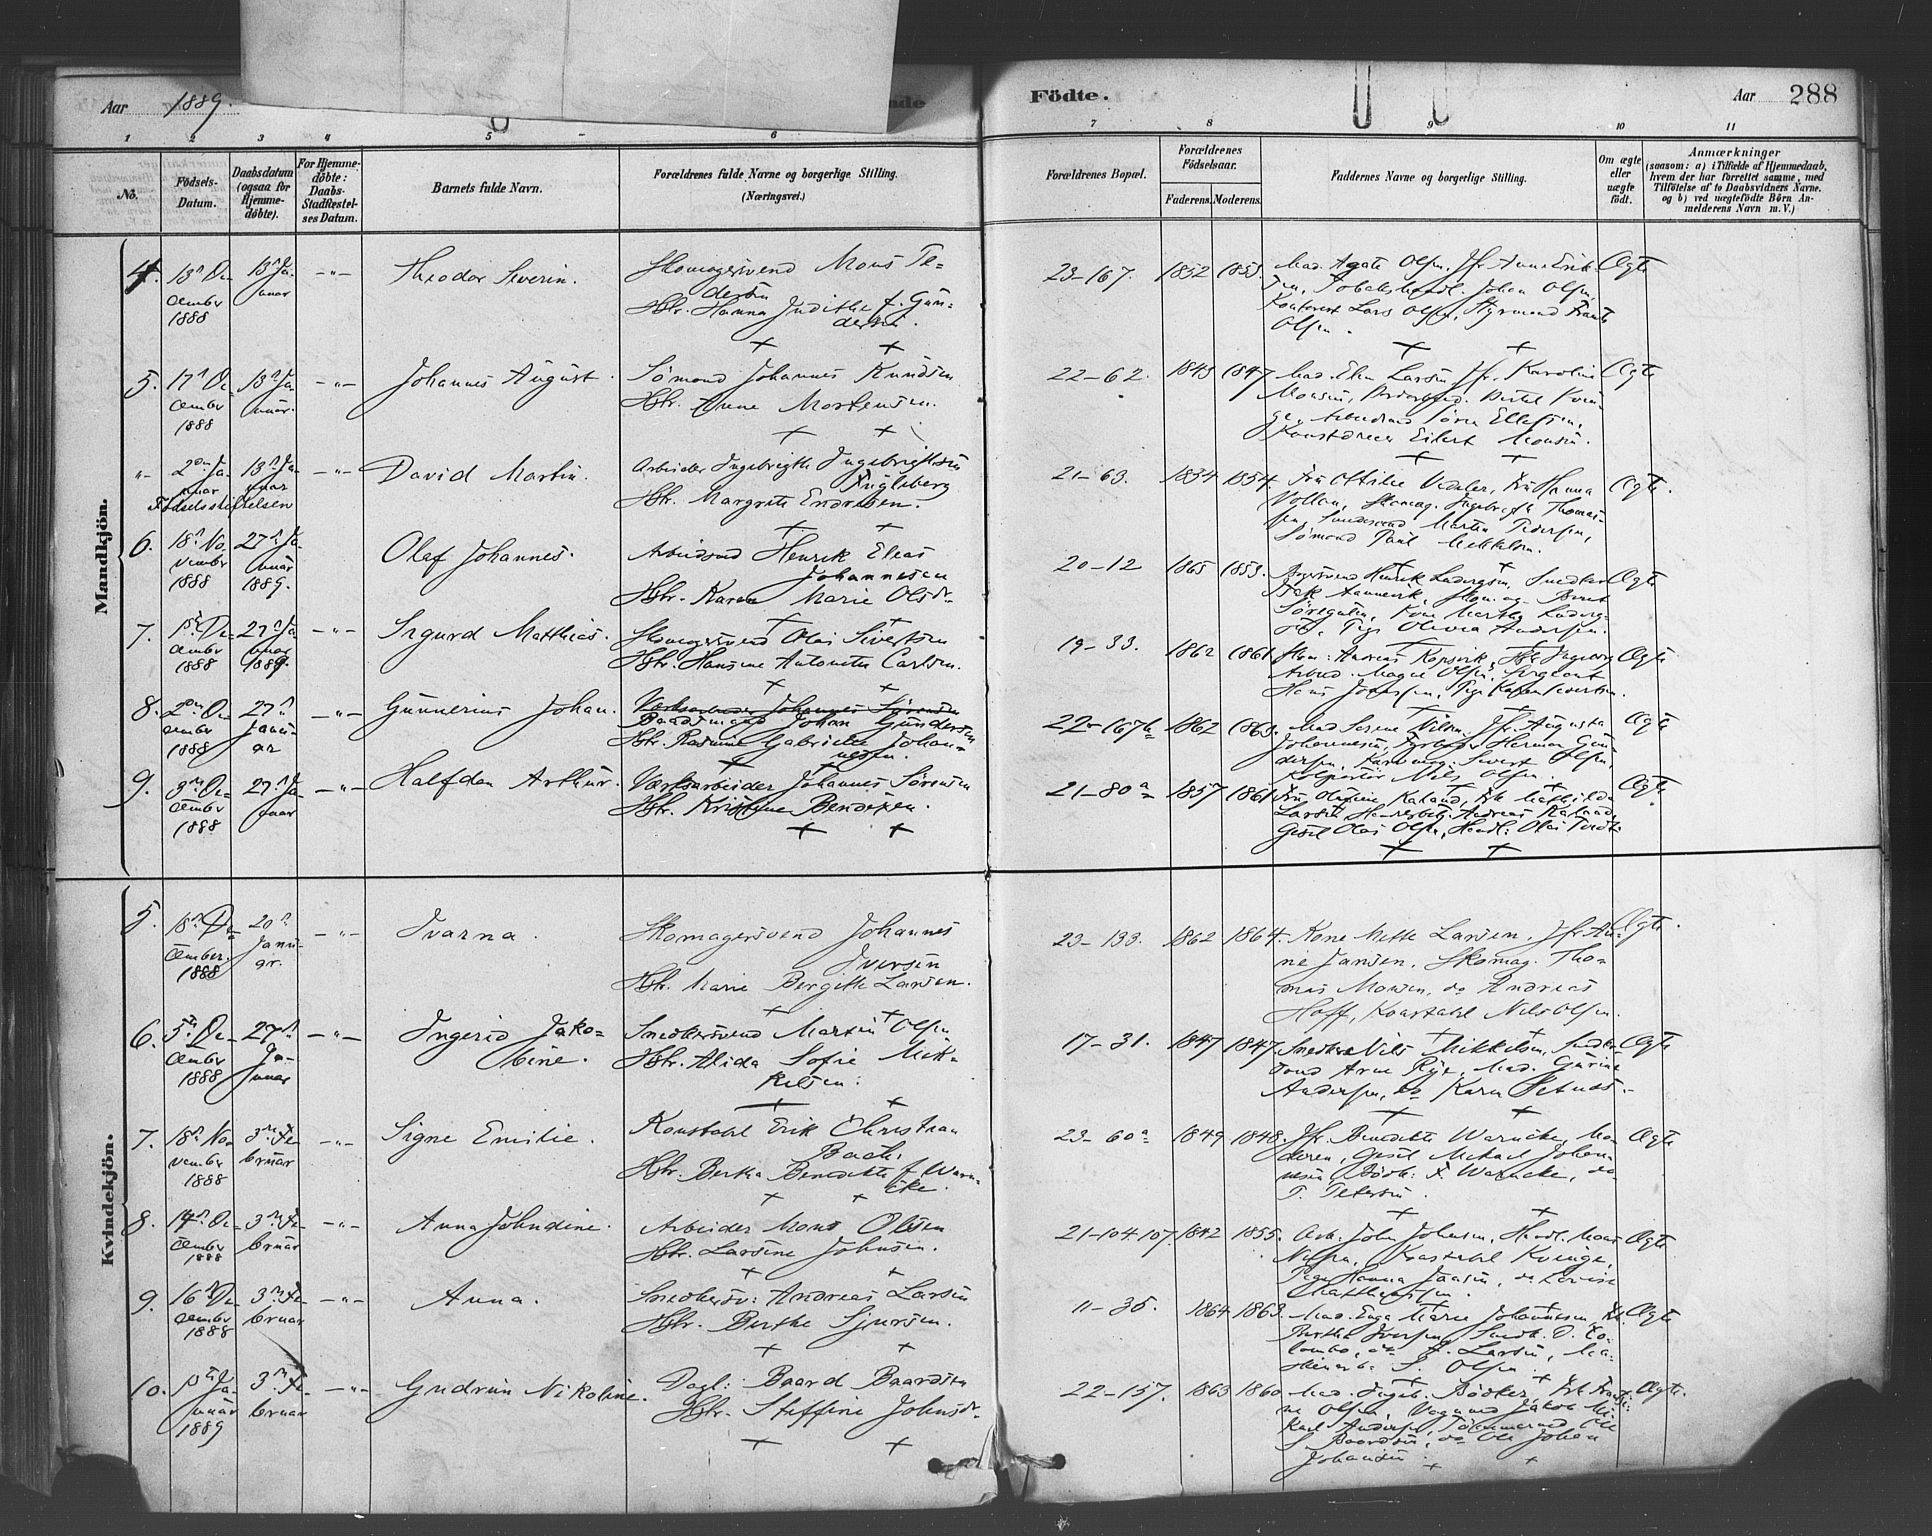 Aar 1889.
nde
Födte.
Aar 288
1 2 3 4 5 6 7 8 9 10 11
No.
Födsels-
Datum.
Daabsdatum
(ogsaa for
Hjemme-
döbte).
For Hjemme-
döbte:
Daabs-
Stadfæstel-
ses Datum.
Barnets fulde Navn.
Forældrenes fulde Navne og borgerlige Stilling.
(Næringsvei.)
Forældrenes Bopæl.
Forældrenes
Födselsaar.
Faderens. Moderens.
Faddernes Navne og borgerlige Stilling.
Om ægte
eller
uægte
födt.
Anmærkninger
(saasom: a) i Tilfælde af Hjemmedaab,
hvem der har forrettet samme, med
Tilföielse af to Daabsvidners Navne.
og b) ved uægtefödte Börn An-
melderens Navn m. V.)
Mandkjön.
4. 13n De-
cember
1888
13n Ja-
nuar
-"-
Theodor Severin.
Skomagersvend Mons Pe-
dersen
Hstr. Hanna Judithe f. Gun-
dersen.
23-167. 1852 1853.
Mad. Agate Olsen, Jfr. Anne Erik-
sen, Tobakshandl. Johan Olsen,
Kontorist Lars Olsen, Styrmand Frantz
Olsen.
Ægte
5. 17n De-
cember
1888
13n Ja-
nuar.
-"-
Johannes August.
Sømand Johannes Knudsen
Hstr. Anne Mortensen.
22-62. 1843 1847
Mad. Elen Larsen, Jfr. Karoline
Monsen,
Arbeidsmd Søren Ellefsen,
Eilert Monsen.
Ægte
"- 2den Ja-
nuar
Fødselsstiftelsen
13n Ja-
nuar
-"-
David Martin.
Arbeider Ingebrigt Ingebrigtsen
Fugleberg
Hstr. Margrete Endresen.
21-63. 1834 1854.
Fru Ottilie Fru Hanna
Vollan, Skomag. Ingebrigt Thomas-
sen, Martin Pedersen,
Sømand Paul Mikkelsen.
Ægte.
6. 18n No-
vember
1888
27n Ja-
nuar
1889.
Olaf Johannes.
Arbeidsmd Henrik Elias
Johannesen
Hstr. Karen Marie Olsdr.
20-12 1865 1853.
Henrik Ludvigsen, Snedker
Skom.
Kone Martha Ludvig-
Pige Olivia Andersen.
Ægte
7. 1ste De-
cember
1888
27n Ja-
nuar
1889.
-"-
Sigurd Matthias.
Skomagersvend Olai Sivertsen
Hstr. Hansine Antonette Carlsen.
19-33. 1862 1861
Skom: Andreas Kopsvik, Hstr Ingeborg
Arbmd. Magne Olsen, Sergeant
Hans Pige Karen Sivertsen.
Ægte
8. 2den De-
cember
1888
27n
Janu-
ar
-"-
Gunnerius Johan.
Værksarbeider Johannes Sørensen
Baadsmand Johan Gundersen
Hstr. Rasmine Gabrielle Johan-
nesen.
22-167b 1862 1863.
Mad Serine Nilsen, Jfr. Augusta
Johannesen, Fyrbøder Herman Gun-
dersen, Sivert Olsen,
Kolportør Nils Olsen.
Ægte
9. 3n De-
cember
1888
27n Ja-
nuar
-"-
Halfdan Arthur.
Værksarbeider Johannes Sørensen
Hstr. Kristine Bendixen.
21-80a 1857 1861
Fru Kaland, Frk Mathilda
Larsen, Andreas Kaland,
Gesel Olai Olsen, Handl. Olai
Ægte
Kvindekjön.
5. 18n De-
cember.
1888
20n
Janu-
ar.
-"-
Ivarna.
Skomagersvend Johannes
Iversen
Hstr. Marie Bergitte Larsen.
23-133. 1862 1864.
Kone Mette Larsen, Jfr. An-
ne Jansen, Skomag. Tho-
mas Monsen, do Andreas
Hoff, Konstabl Nils Olsen.
Ægte.
6. 5te De-
cember
1888
27n
Ja-
nuar
-"-
Ingerid Jako-
bine.
Snedkersvend Martin Olsen
Hstr. Alida Sofie Mik-
kelsen.
17-31. 1847 1847.
Snedker Nils Mikkelsen, Snedker
svend Arne Rye, Mad. Gurine
Andersen, do Karen
Ægte
7. 18n No-
vember
1888
3n Fe-
bruar
-"-
Signe Emilie.
Konstabl Erik Christian
Bach.
Hstr. Bertha Benedikte f. Warn-
cke.
23-60a 1849 1848.
Jfr. Benedikte Warncke, Mo-
deren, Gesel Mikael Johan-
nesen, Bødk: F. Warncke, do
P. Petersen.
Ægte
8. 14n De-
cember
1888
3n Fe-
bruar
-"-
Anna Johndine.
Arbeider Mons Olsen
Hstr. Larsine Johnsen.
21-104.107. 1842 1855.
Arb. John Johnsen, Handl. Mons
Nilsen, Konstabel Kvinge,
Pige Hanna Jansen, do Lovise
Matthiessen.
Ægte
9. 16n De-
cember
1888
3n Fe-
bruar
-"-
Anna.
Snedkersv: Andreas Larsen
Hstr. Berthe Sjursen.
11-35. 1864 1863.
Mad. Inga Marie Johannesen, Frk.
Bertha Iversen, Snedk. D. Co-
lombo, do A. Larsen, Ma-
skinarb. S. Olsen.
Ægte
10. 1ste Ja-
nuar
1889
3n Fe-
bruar
-"-
Gudrun Nikoline.
Dagl: Baard Baardsen
Hstr. Steffine Johnsdr.
22-157. 1863 1860
Mad. Ingeb. Bødker, Frk
ne Olsen, Vognmd Jakob
Karl Andersen, Tømmermd Ole
S. Baardsen, do Ole Johan
Johansen.
Ægte.